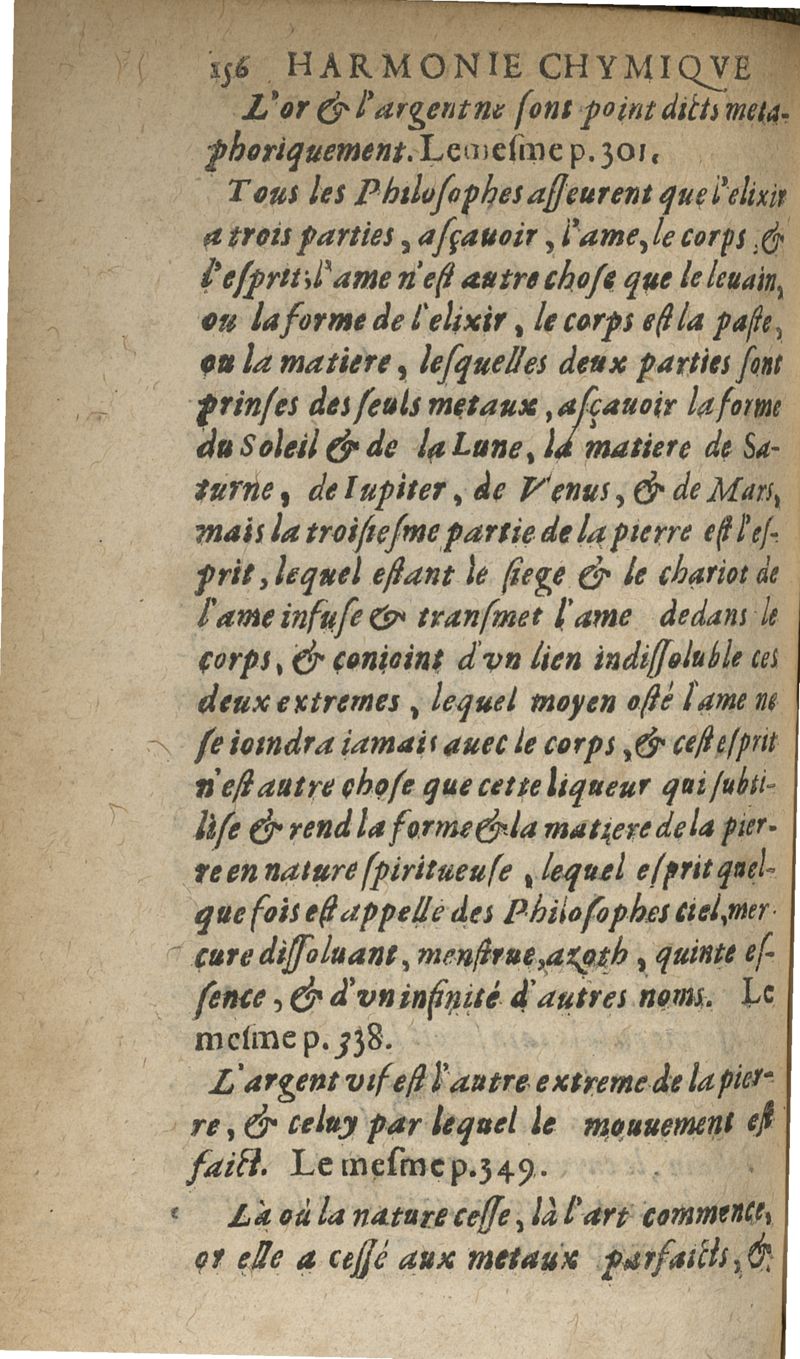 156 HARMONIE CHYMIQVE
L'or & l'argent ne sont point dicts meta-
phoriquement. Le mesme p. 301.
Tous les Philosophes asseurent que l'elixir
a trois parties, asçauoir, l'ame, le corps &
l'esprit; l'ame n'est autre chose que le leuain,
ou la forme de l'elixir, le corps est la paste,
ou la matiere, lesquelles deux parties sont
prinses des seuls metaux, asçauoir la forme
du Soleil & de la Lune, la matiere de Sa-
turne, de Iupiter, de Venus, & de Mars,
mais la troisiesme partie de la pierre est l'es-
prit, lequel estant le siege & le chariot de
l'ame infuse & transmet l'ame dedans le
corps, & conioint d'vn lien indissoluble ces
deux extremes, lequel moyen osté l'ame ne
se ioindra iamais auec le corps, & cest esprit
n'est autre chose que cette liqueur qui subti-
lise & rend la forme & la matiere de la pier-
re en nature spiritueuse, lequel esprit quel-
que fois est appellé des Philosophes ciel, mer-
cure dissoluant, menstrue, azoth, quinte es-
sence, & d'vn infinité d'autres noms. Le
mesme p. 338.
L'argent vif est l'autre extreme de la pier-
re, & celuy par lequel le mouuement est
faict. Le mesme p. 349.
Là où la nature cesse, là l'art commence,
or elle a cessé aux metaux parfaicts, &